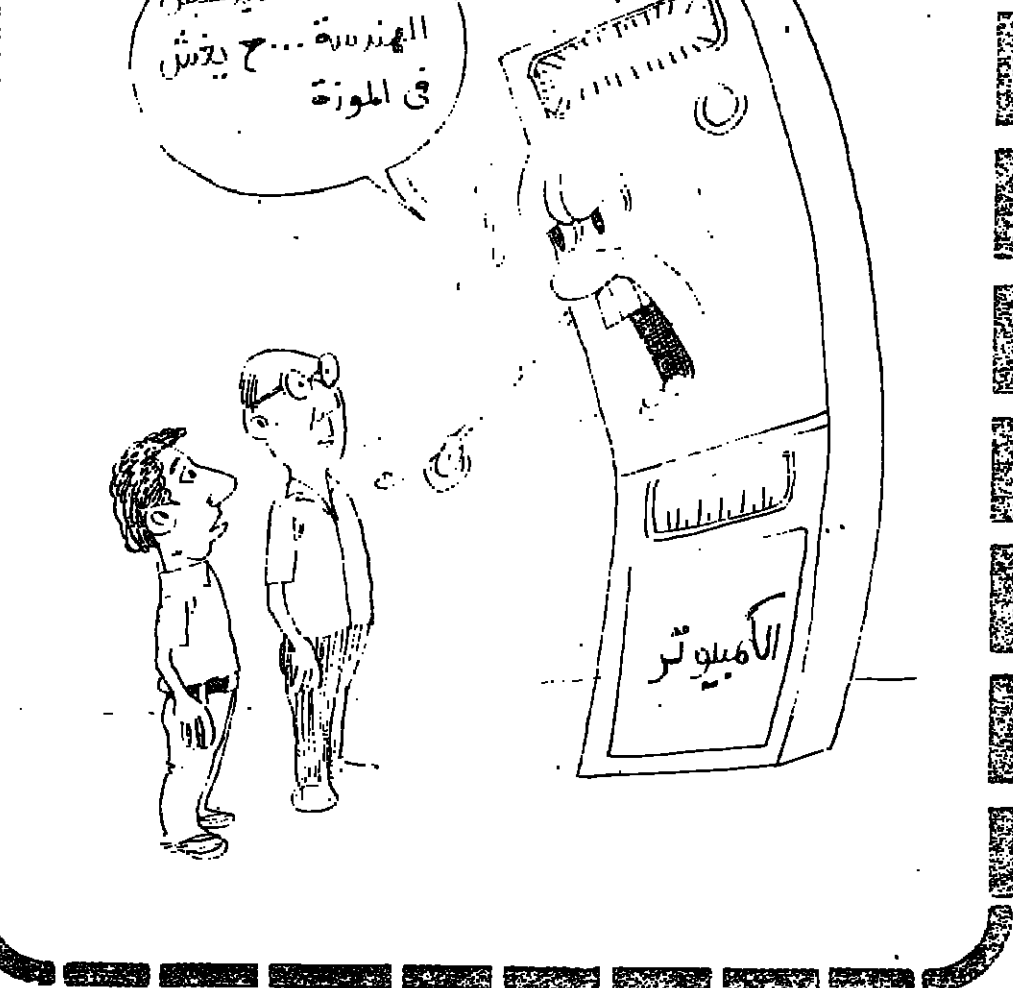 الهندسة ... ح يخش
فى الموزة
الكمبيوتر